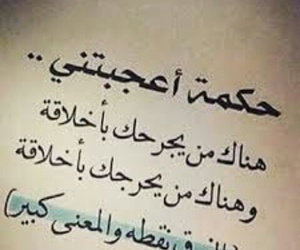 حكمة أعجبتني ..
هناك من يجرحك بأخلاقة
وهناك من يحرجك بأخلاقة
ق نقطه والمعنى كبير)